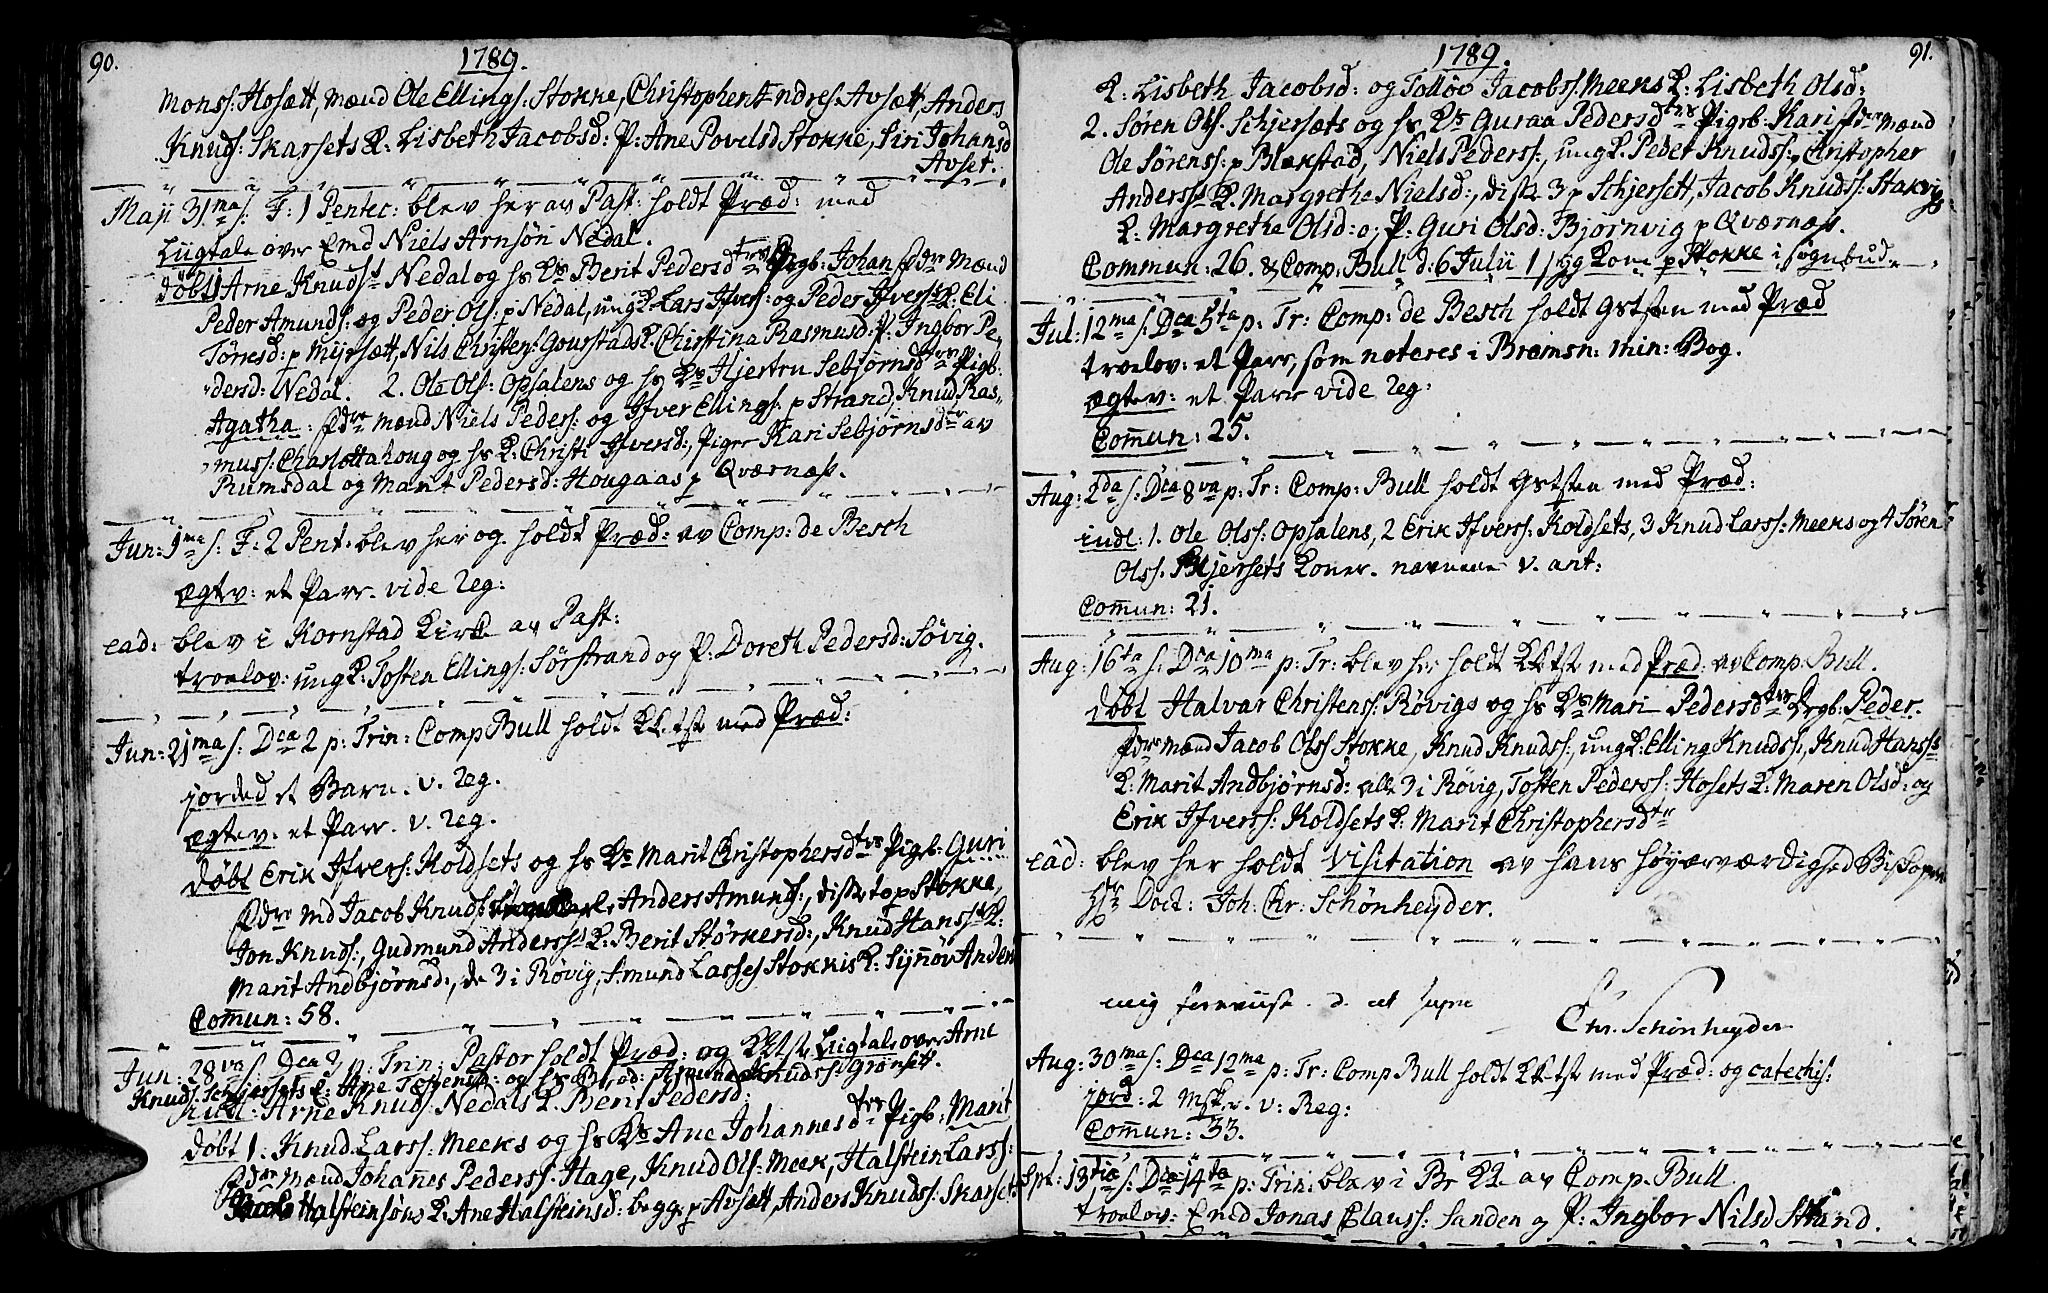 90.
1789.
Monss: Hosætt, mænd Ole Ellings: Stokke, Christopher Endres: Avsætt, Anders
Knuds: Skarsets K: Lisbeth Jacobsd: P: Ane Povelsd Stokke, Siri Johansd
Avset.
Maji 31ma s: F: 1 Pentec: blev her av Past: holdt Præd: med
Liigtale over Emd Niels Arnsøn Nedal.
døbt 1 Arne Knuds Nedal og hs Ks Berit Pedersdtrs Drgb: Johan fdre Mænd
Peder Amunds: og Peder Ols: p Nedal, ung K Lars Ifvers: og Peder Ifvers K: Eli
Tørresd: p Myrsætt, Nils Christens: Gourstads K: Christina Rasmusd: P: Ingbor Pe-
dersd: Nedal. 2. Ole Ols: Opsalens og hs Ks Hjertru Sebjørnsdtrs Pigb:
Agatha: fdre mænd Niels Peders: og Ifver Ellings: p Strand, Knud Ras-
muss: Charlottahoug og hs K: Christi Ifversd:, Piger Kari Sebjørnsdtr av
Rumsdal og Marit Pedersd: Hougaas p Qværnæss.
Jun: 1ma s: F: 2 Pent: blev her og holdt Præd: av Comp: de Besch
ægtev: et Parr. vide Reg:
ead: blev i Kornstad Kirk av Past:
troelov: ung K: Tosten Ellings: Sørstrand og P: Doreth Pedersd: Søvig.
Jun: 21ma s: Dca 2 p: Trin: Comp Bull holdt KKtst med Præd:
jorded et Barn. v. Reg.
ægtev: et Parr. v. Reg.
døbt Erik Ifvers: Koldsets og hs Ks Marit Christophersdtrs Pigb: Guri
fdre Md Jacob Knuds Anders Amunds:, disse to p Stokke,
Jon Knuds:, Gudmund Anderss K: Berit Størkersd:, Knud Hanss K:
Marit Andbjørnsd:, de 3 i Røvig, Amund Lasses Stokkis K: Synnøv Anders
Comun: 58.
Jun: 28va s: Dca 3 p: Trin: Pastor holdt Præd: og KKtst, Liigtale over Arne
Knuds: Schjersets
indl: Arne Knuds: Nedals K. Berit Pedersd:
døbt 1. Knud Larss: Meeks og hs Ks Ane Johannesdtrs Pigb: Marit
fdre Mænd Johannes Pederss: Hage, Knud Ols: Meek, Halstein Larss:
Halsteinsøns K: Ane Halsteinsd: begge p Avsætt, Anders Knuds: Skarset
91.
1789.
K: Lisbeth Jacobsd: og Tolløv Jacobss: Meens K: Lisbeth Olsd:
2. Søren Ols: Schjersæts og hs Ks Guraa Pedersdtrs Pigrb: Kari fdre mænd
Ole Sørenss: p Blakstad, Niels Pederss:, ung K. Peder Knudss: Cristopher
Anderss K. Margrethe Nielsd:, disse 3 p Schjersett, Jacob Knudss: Stakvigs
K: Margrethe Olsd: og P: Guri Olsd: Bjørnvig p Qværnæss.
Commun: 26. & Comp: Bull d: 6 Julii 1 syg Kone p Stokke i sognebud.
Jul: 12ma s: Dca 5ta p: Tr: Comp: de Besch holdt Gtstsen med Præd
trolov: et Parr, som noteres i Bremsn: min: Bog.
ægtev: et Parr vide Reg:
Comun: 25.
Aug: 2da s: Dca 8va p: Tr: Comp: Bull holdt Gtstsen med Præd:
indl: 1. Ole Olss: Opsalens, 2 Erik Ifverss: Koldsets, 3 Knud Larss: Meeks og 4 Søren
Olss. Skjersets Koner. navnene v. ant:
Comun: 21.
Aug: 16ta s: Dca 10ma p: Tr: blev her holdt KKtst med Præd: av Comp: Bull.
døbt Halvar Christenss: Røvigs og hs Ks Mari Pedersdtrs Drgb: Peder.
fdre mænd Jacob Olss Stokke, Knud Knudss:, ung K: Elling Knudss:, Knud Hanss
K: Marit Andbjørnsd: alle 3 i Røvig, Tosten Pederss: Hosets K: Maren Olsd: og
Erik Ifverss: Koldsets K: Marit Christophersdtr
ead: blev her holdt Visitation av hans Høyærværdighed Biskopen
Hr Doct: Joh: Chr: Schønheyder.
mig foreviist
Chr. Schønheyder
Aug: 30ma s: Dca 12ma p: Tr: Comp Bull holdt KKtst med Præd: og catechis:
jord: 2 v: Reg:
Comun: 33.
Spt: 13tia s: Dca 14ta p: Trin: blev i Br KK av Comp. Bull
troelov: Emd Jonas Clauss: Sanden og P: Ingbor Nilsd Strand.